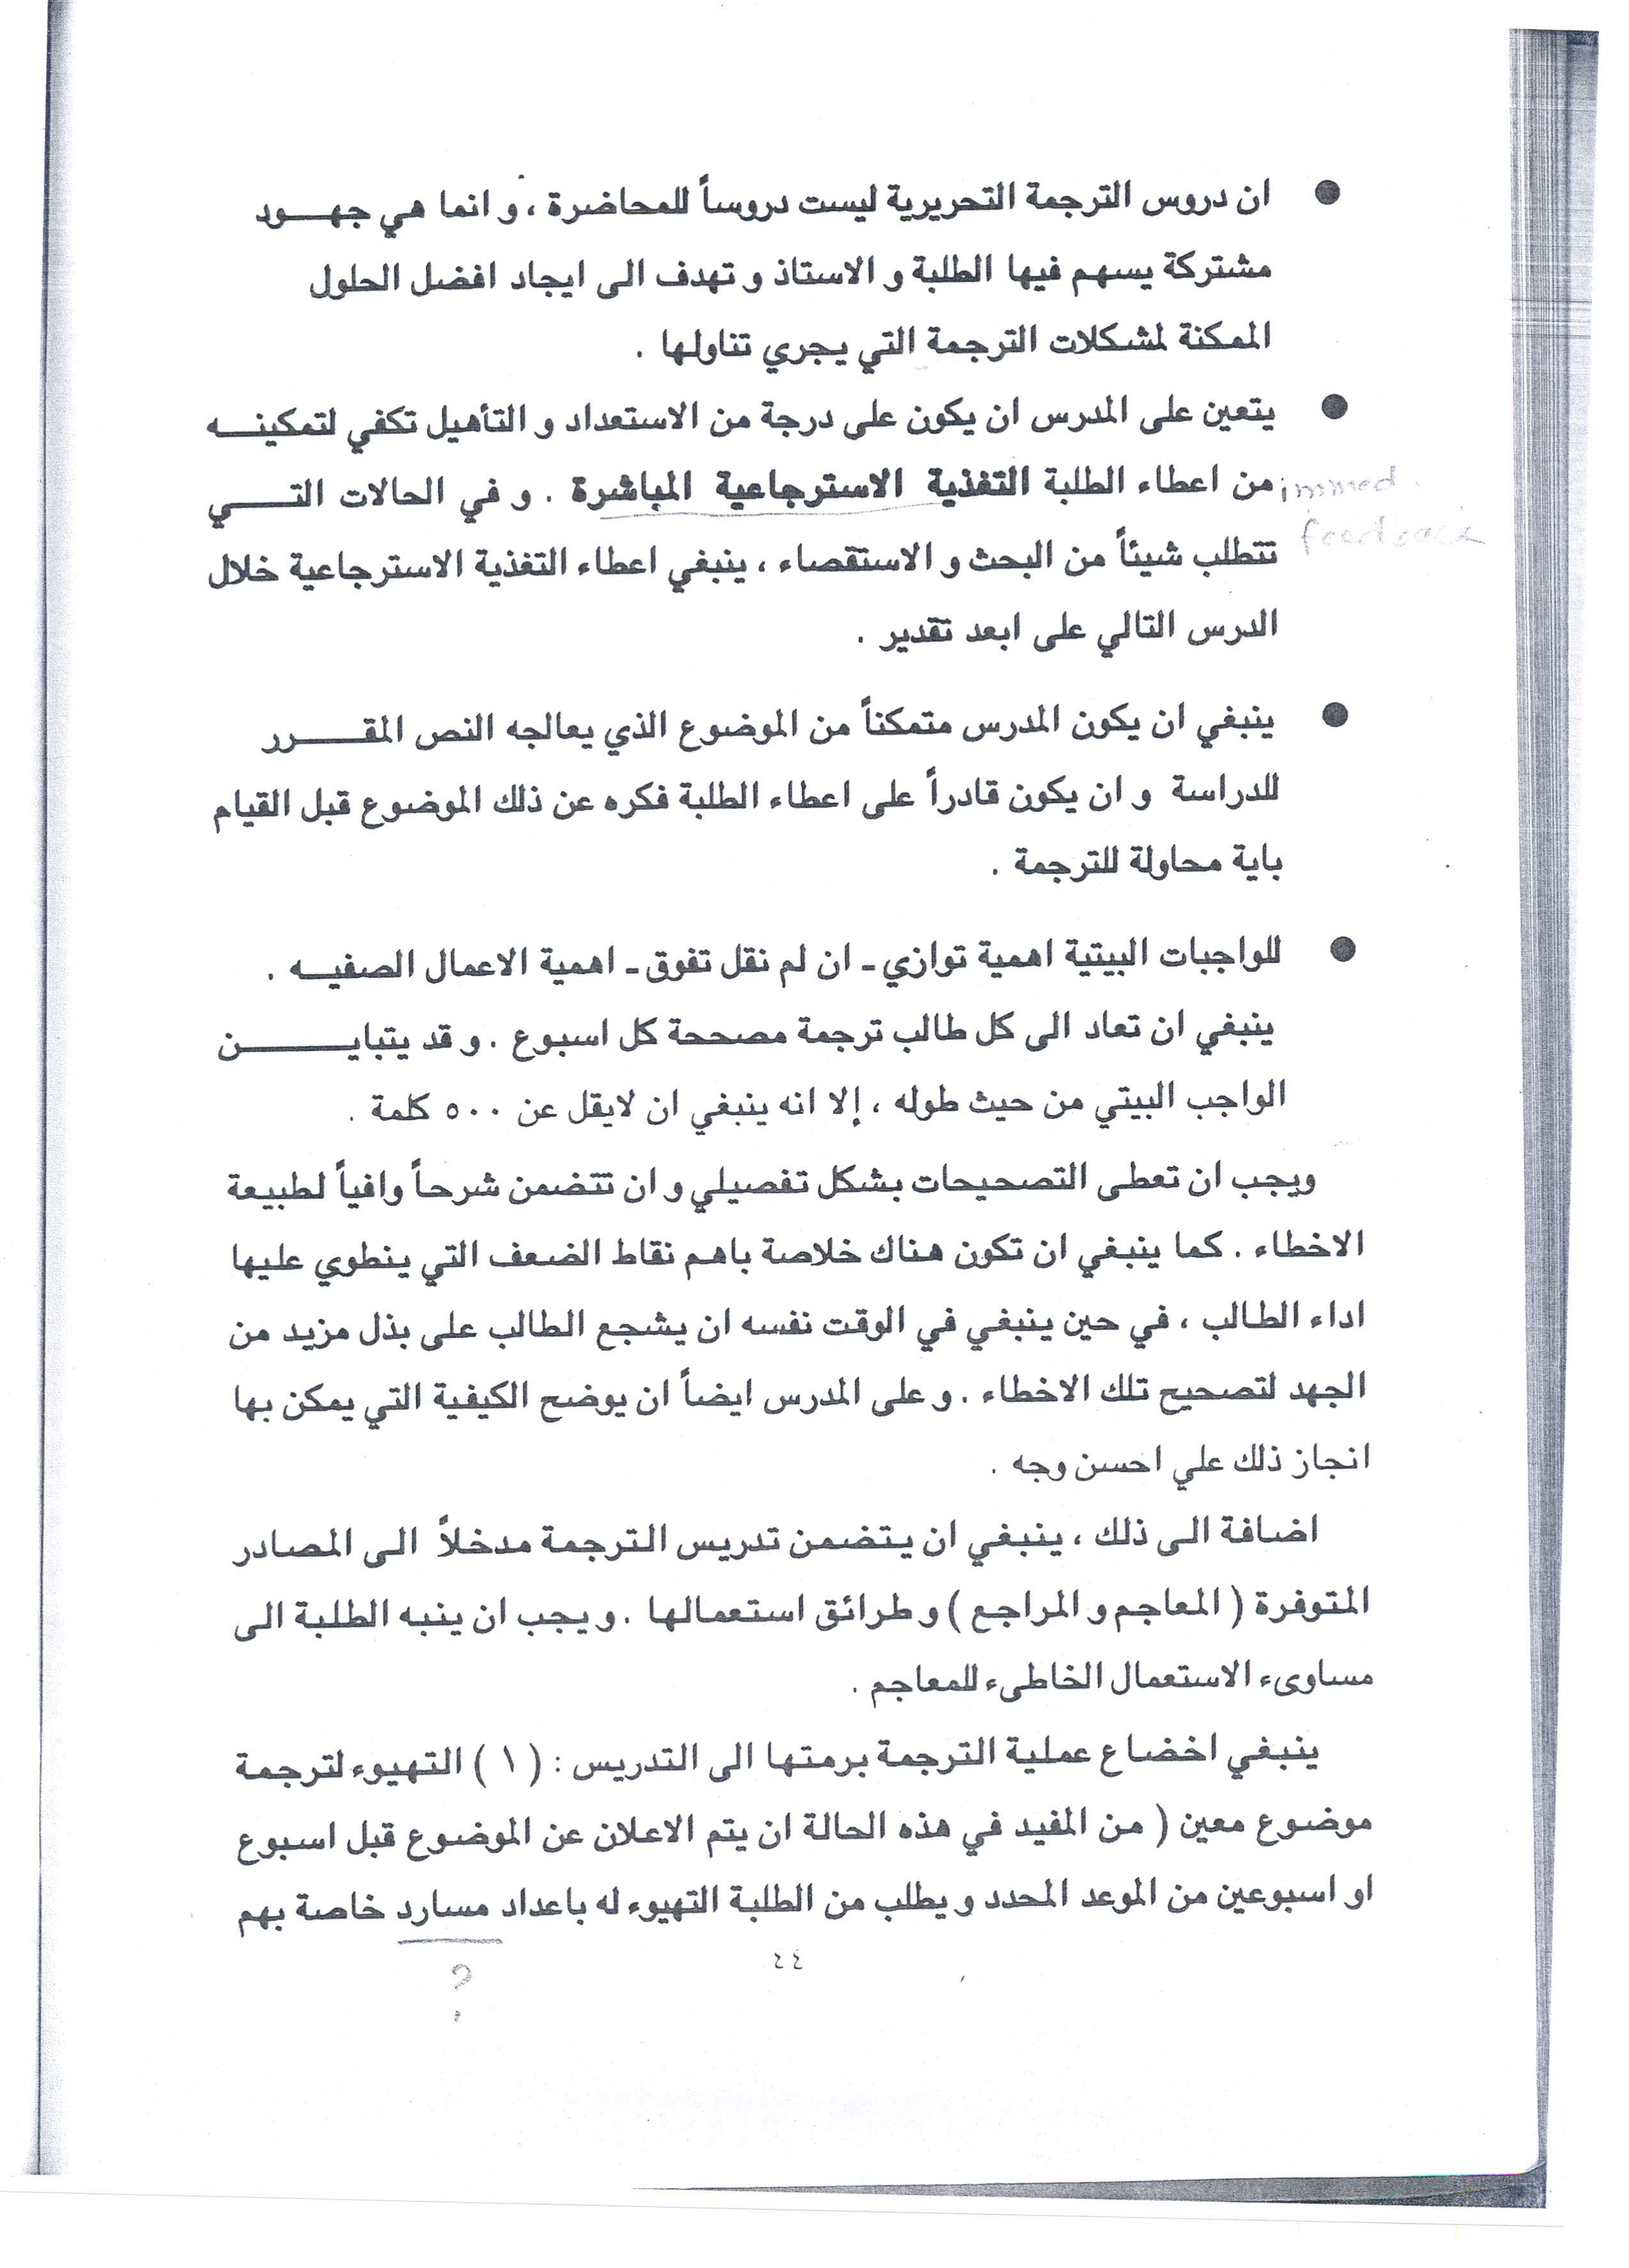 ● ان دروس الترجمة التحريرية ليست دروساً للمحاضرة ، و انما هي جهـــود
مشتركة يسهم فيها الطلبة و الاستاذ و تهدف الى ايجاد افضل الحلول
الممكنة لمشكلات الترجمة التي يجري تناولها .
● يتعين على المدرس ان يكون على درجة من الاستعداد و التأهيل تكفي لتمكينـــه
من اعطاء الطلبة التغذية الاسترجاعية المباشرة . و في الحالات التـــــي
immed.
تتطلب شيئاً من البحث و الاستقصاء ، ينبغي اعطاء التغذية الاسترجاعية خلال
feedback
الدرس التالي على ابعد تقدير .
● ينبغي ان يكون المدرس متمكناً من الموضوع الذي يعالجه النص المقـــــرر
للدراسة و ان يكون قادراً على اعطاء الطلبة فكره عن ذلك الموضوع قبل القيام
باية محاولة للترجمة .
● للواجبات البيتية اهمية توازي ـ ان لم نقل تفوق ـ اهمية الاعمال الصفيـــه .
ينبغي ان تعاد الى كل طالب ترجمة مصححة كل اسبوع . و قد يتبايــــــــن
الواجب البيتي من حيث طوله ، إلا انه ينبغي ان لايقل عن ٥٠٠ كلمة .
ويجب ان تعطى التصحيحات بشكل تفصيلي و ان تتضمن شرحاً وافياً لطبيعة
الاخطاء . كما ينبغي ان تكون هناك خلاصة باهم نقاط الضعف التي ينطوي عليها
اداء الطالب ، في حين ينبغي في الوقت نفسه ان يشجع الطالب على بذل مزيد من
الجهد لتصحيح تلك الاخطاء . و على المدرس ايضاً ان يوضح الكيفية التي يمكن بها
انجاز ذلك علي احسن وجه .
اضافة الى ذلك ، ينبغي ان يتضمن تدريس الترجمة مدخلاً الى المصادر
المتوفرة ( المعاجم و المراجع ) و طرائق استعمالها . و يجب ان ينبه الطلبة الى
مساوىء الاستعمال الخاطىء للمعاجم .
ينبغي اخضاع عملية الترجمة برمتها الى التدريس : ( ١ ) التهيوء لترجمة
موضوع معين ( من المفيد في هذه الحالة ان يتم الاعلان عن الموضوع قبل اسبوع
او اسبوعين من الموعد المحدد و يطلب من الطلبة التهيوء له باعداد مسارد خاصة بهم
٤٤
?